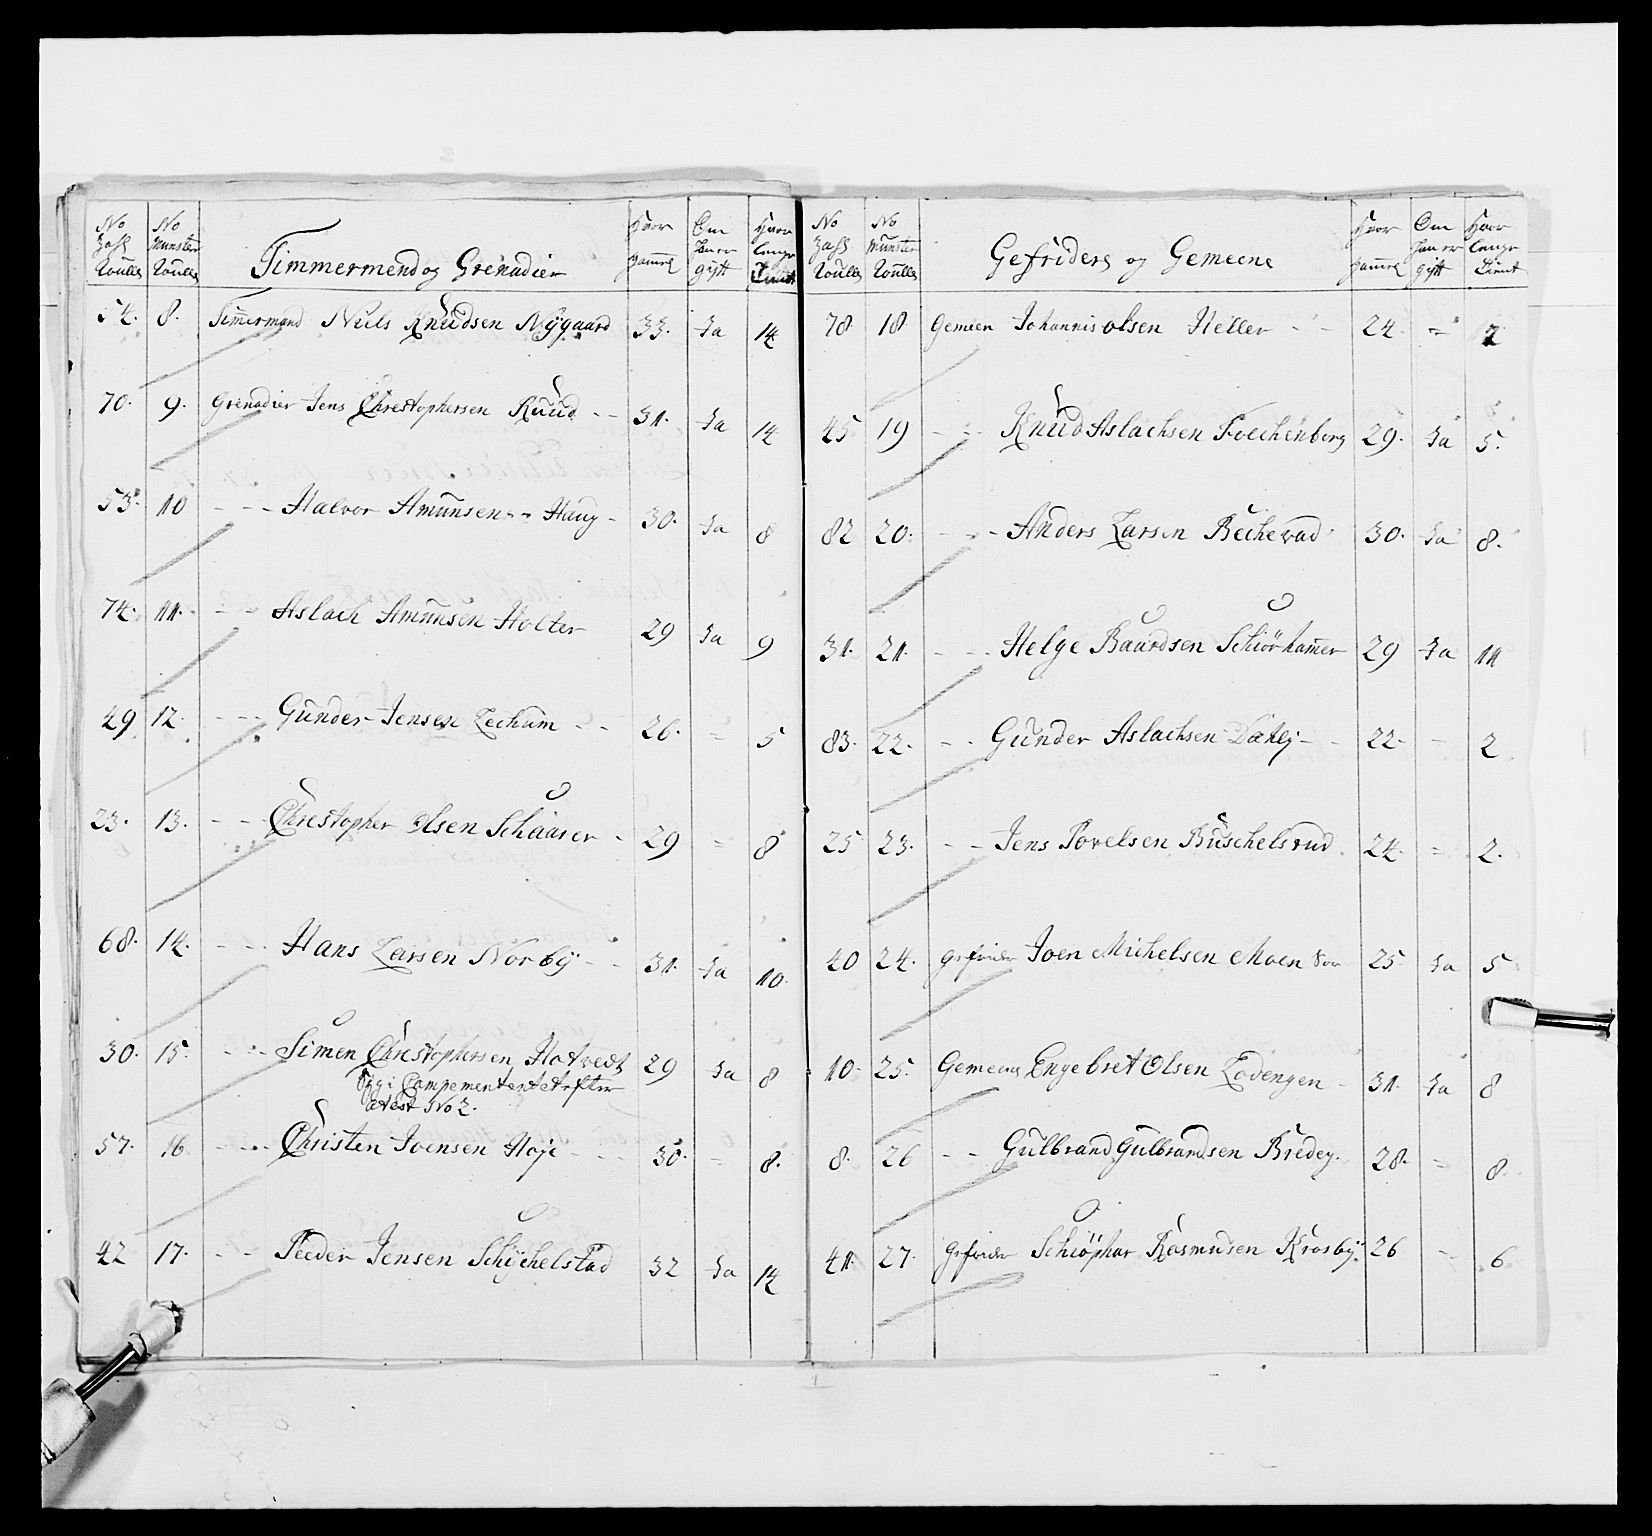 No Zahl Roulle | No Munster Roulle | Timmermend og Grenadier | Hvor gamel | Om han er gift | Hvor lenge tient
54. 8. Timmermand Niels Knudsen Nÿgaard 33. Ja 14
70. 9. Grenadier Jens Chrestophersen Ruud - - 31. Ja 14
53. 10 - - - Halvor Amunsen - - Haug - 30. Ja 8
74. 11. - - Aslach Amunsen Holter 29 Ja 9
49 12. - - - Gunder Jensen Lechum - - 26. = 5
23. 13. - - - Chrestopher Olsen Schaarer - 29 = 8
68. 14. - - - Hans Larsen Norbÿ - - 31. Ja 10.
30. 15. - - - Simen Chrestophersen Hotvedt 29 Ja 8
Sÿg i Campementent efter
atest No 2.
57. 16 - - - Christen Joensen Hoje - - - 30. = 8.
42 17. - - Peeder Jensen Schÿchelstad 32 Ja 14
No Zahl Roulle | No Munster Roulle | Gefriders og Gemeene | Hvor gamel | Om han er gift | Hvor lenge tient
78 18 Gemeen Johannis olsen Heller - - 24. = 2
45 19 - - - Knud Aslachsen Foechenborg 29. Ja 5.
82 20. - - - Anders Larsen Becherad 30. Ja 8.
31. 21. - - - Helge Baardsen Schiörhamer 29 Ja 11
83. 22. - - Gunder Aslachsen Dæhlj - - 22. - 2
25 23. - - Jens Povelsen Buschelsrud 24. = 2.
40 24. gefrider Joen Michelsen Moen 25 Ja 5
10. 25. Gemeene Engebret Olsen Lovengen - 31. Ja 8
8. 26 - - Gulbrand Gulbrandsen Bredeg. 28. = 8.
41. 27. gefrider Schiöphar Rasmusen Krosbÿ 26 - 6